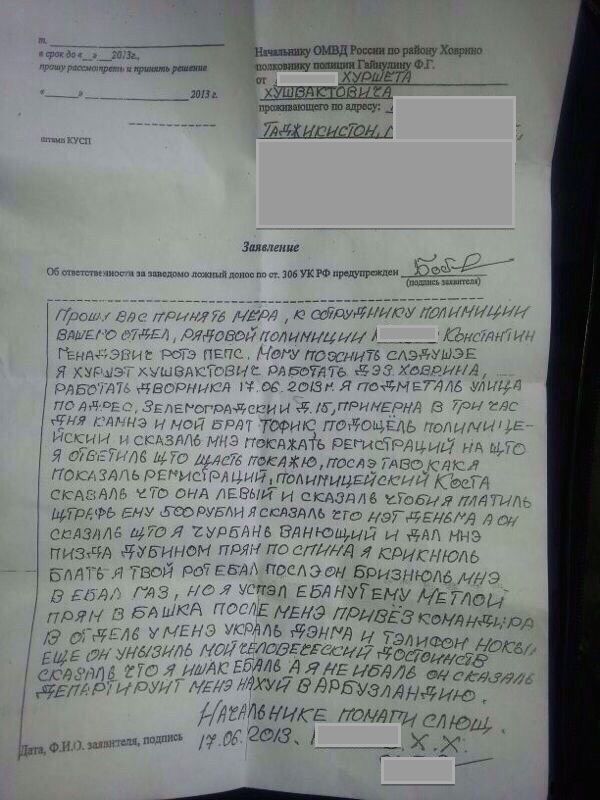 т.
в срок до «__» __2013г.,
прошу рассмотреть и принять решение
«______» ____________ 2013 г.
штамп КУСП
Начальнику ОМВД России по району Ховрино
полковнику полиции Гайнулину Ф.Г.
от ХУРШЕТА
ХУШВАКТОВИЧА
проживающего по адресу:
ТАДЖИКИСТОН,
Заявление
Об ответственности за заведомо ложный донос по ст. 306 УК РФ предупрежден
(подпись заявителя)
ПРОШУ ВАС ПРИНЯТЬ МЕРА, К СОТРУДНИКУ ПОЛИМИЦИИ
ВАШЕГО ОТДЕЛ, РЯДОВОЙ ПОЛИМИЦИИ КОНСТАНТИН
ГЕНАДЭВИЧ РОТЭ ПЕПС. МОМУ ПОЯСНИТЬ СЛЭДУШЭЕ
Я ХУРШЭТ ХУШВАКТОВИЧ РАБОТАТЬ ДЭЗ ХОВРИНА,
РАБОТАТЬ ДВОРНИКА 17.06.2013г. Я ПОДМЕТАЛЬ УЛИЦА
ПО АДРЕС, ЗЕЛЕМОГРАДСКИЙ Д.15, ПРИМЕРНА В ТРИ ЧАС
ДНЯ КАМНЭ И МОЙ БРАТ ТОФИК ПОДОЩЁЛЬ ПОЛИМИЦЕ-
ЙСКИЙ И СКАЗАЛЬ МНЭ ПОКАЖАТЬ РЕГИСТРАЦИЙ НА ЩТО
Я ОТВЕТИЛЬ ЩТО ЩАСТЬ ПОКАЖЮ, ПОСЛЭ ТАВО КАК Я
ПОКАЗАЛЬ РЕГИСТРАЦИЙ, ПОЛИМИЦЕЙСКИЙ КОСТА
СКАЗАЛЬ ЧТО ОНА ЛЕВЫЙ И СКАЗАЛЬ ЧТОБИ Я ПЛАТИЛЬ
ЩТРАФЬ ЕМУ 500 РУБЛИ Я СКАЗАЛЬ ЧТО НЭТ ДЕНЬГА А ОН
СКАЗАЛЬ ЩТО Я ЧУРБАНЬ ВАНЮЩИЙ И ДАЛ МНЭ
ПИЗДА ДУБИНОМ ПРЯМ ПО СПИНА Я КРИКНЮЛЬ
БЛАТЬ Я ТВОЙ РОТ ЕБАЛ ПОСЛЭ ОН БРИЗНЮЛЬ МНЭ
В ЕБАЛ ГАЗ, НО Я УСПЭЛ ЕБАНУТ ЕМУ МЕТЛОЙ
ПРЯМ В БАШКА ПОСЛЕ МЕНЭ ПРИВЁЗ КОМАНДИ,РА
В ОТДЕЛЬ У МЕНЭ УКРАЛЬ ДЭНГА И ТЭЛИФОН НОКЫ
ЕЩЕ ОН УНЫЗИЛЬ МОЙ ЧЕЛОВЕЧЕСКИЙ ДОСТОИНСТВ
СКАЗАЛЬ ЧТО Я ИШАК ЕБАЛЬ А Я НЕ ИБАЛЬ ОН СКАЗАЛЬ
ДЕПАРТИРУИТ МЕНЭ НАХУЙ В АРБУЗЛАНДИЮ.
НАЧАЛЬНИКЕ ПОМАГИ СЛЮЩ.
Дата, Ф.И.О. заявителя, подпись
17.06.2013. Х.Х.